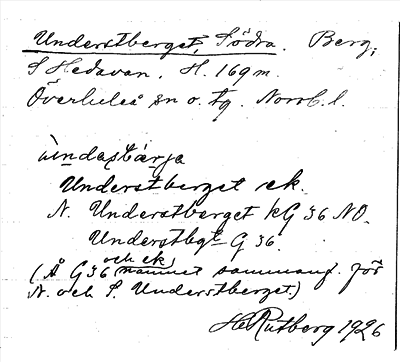 Understberget, Södra. Berg,
S Hedavan. H. 169 m.
Överluleå sn o. tg. Norrb. l.
ùndaştbærja
Understberget ek.
N. Understberget kG 36 NO.
Understbgt - G 36.
(Å G 36 och ek namnet sammanf. för
N. och S. Understberget.)
H Rutberg 1926